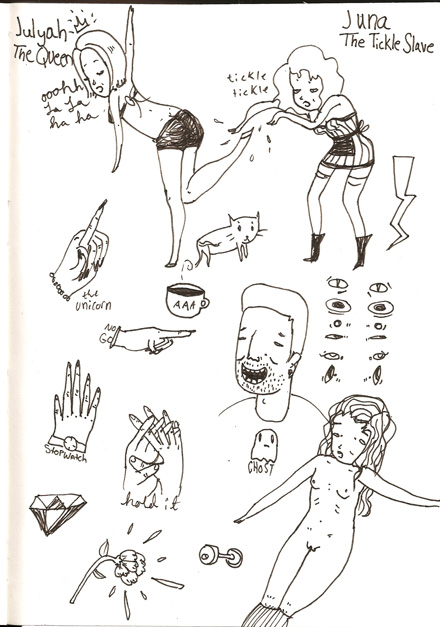 Julyah
The Queen
Juna
The Tickle Slave
tickle
tickle
ooohh
la la
ha ha
the
unicorn
AAA
NO
GO
Stopwatch
hold it
GHOST